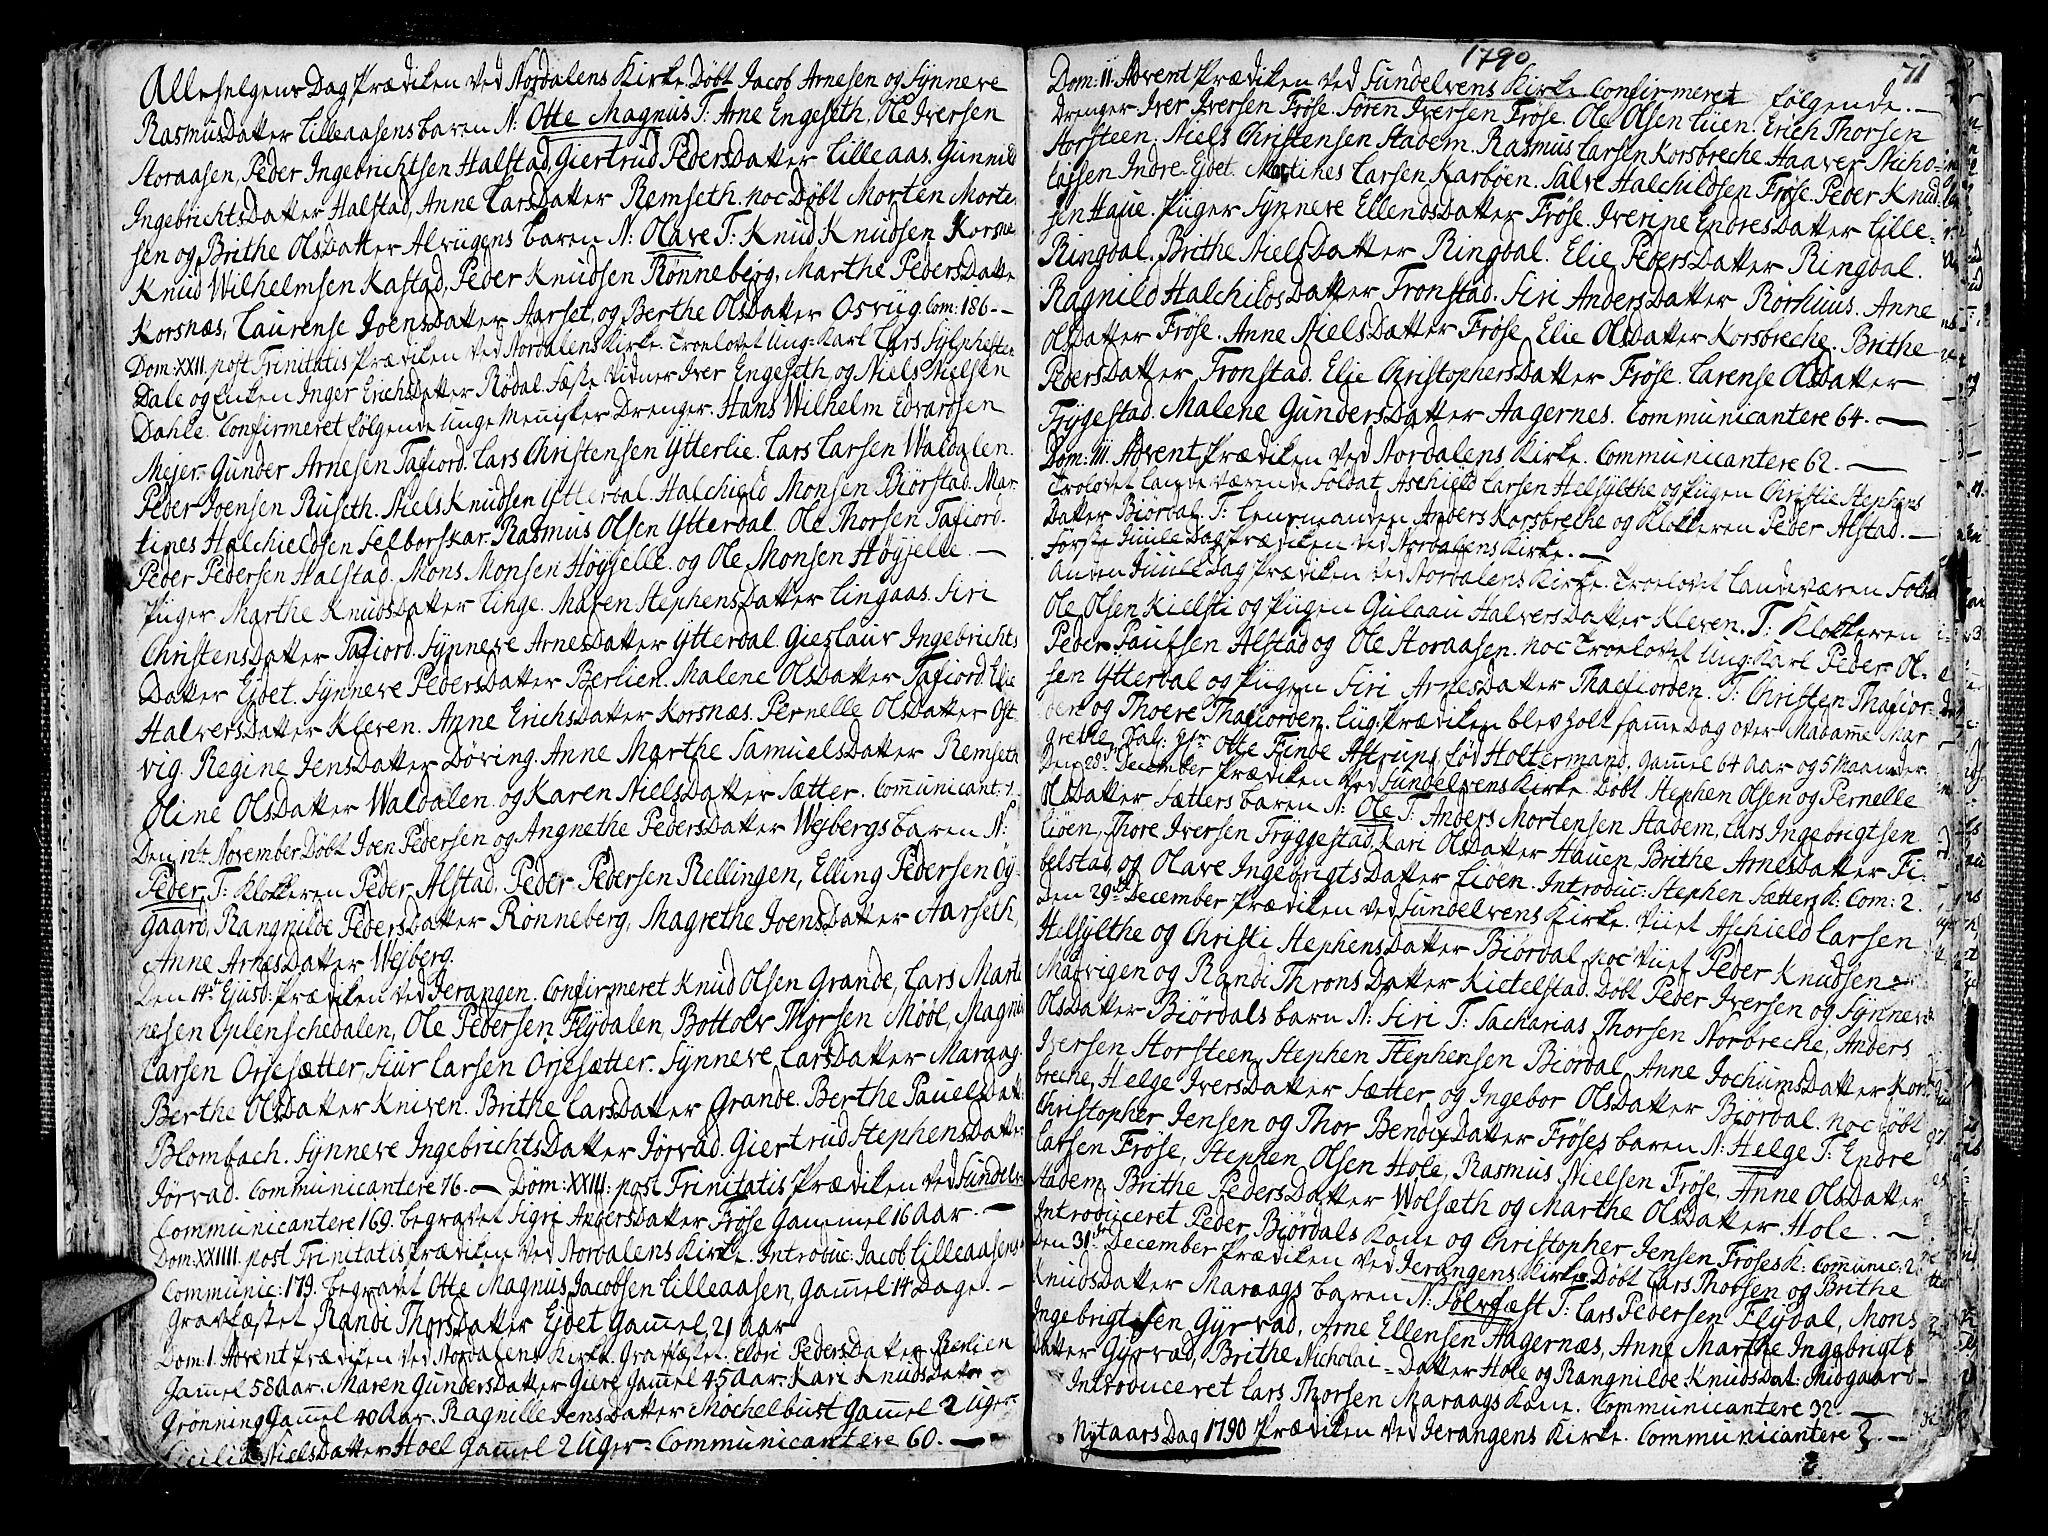 Allehelgens Dag Prædiken ved Nordalens Kirke. Døbt Jacob Arnesen og Synneve
RasmusDatter Lilleaasens baren N: Otte Magnus T: Arne Engeseth, Ole Iversen
Storaasen, Peder Ingebrichtsen Halstad, Giertrud PedersDatter Lilleaas. Gunnild
IngebrichtsDatter Halstad, Anne LarsDatter Remseth. noc Døbt Morten Morten
sen og Brithe OlsDatter Alvügens baren N: Olave T: Knud Knudsen Korsnæ
Knud Wilhelmsen Kastad, Peder Knudsen Rønneberg, Marthe PedersDatter
Korsnæs, Laurense JoensDatter Aarset, og Berthe OlsDatter Osvüg. Com: 186. —
Dom: XXII. post Trinitatis Prædiken ved Nordalens Kirke. Troelovet Ung-Karl Lars Sylphesten
Dale og Enken Inger ErichsDatter Rødal. Fæste Vidner Iver Engeseth, og Niels Nielsen
Dahle. Confirmeret følgende unge Mennisker Drenger. Hans Wilhelm Edvardsen
Mejer. Gunder Arnesen Tafiord. Lars Christensen Ytterlie. Lars Larsen Waldalen.
Peder Joensen Ruseth. Niels Knudsen Ytterdal. Halchield Monsen Biørstad. Mar
tines Halchieldsen Selborskar. Rasmus Olsen Ytterdal. Ole Thorsen Tafiord.
Peder Pedersen Halstad. Mons Monsen Høyjelle. og Ole Monsen Høyjelle. —
Piiger. Marthe KnudsDatter Linge. Maren StephensDatter Lingaas. Siri
ChristensDatter Tafiord. Synneve ArnesDatter Ytterdal. Gieslaur Ingebrichts
Datter Ejdet. Synneve PedersDatter Berlien. Malene OlsDatter Tafiord. Elie
HalversDatter Kleven. Anne ErichsDatter Korsnæs. Pernelle OlsDatter Ost
vig. Regine JensDatter Døving. Anne Marthe SamuelsDatter Remseth
Oline OlsDatter Waldalen. og Karen NielsDatter Sætter. Communicant:
Den November Døbt Joen Pedersen og Angnethe PedersDatter Wejbergs baren N:
Peder T: Klokkeren Peder Alstad. Peder Pedersen Rellingen, Elling Pedersen Øy
gaard, Rangnilde PedersDatter Rønneberg, Magrethe JoensDatter Aarseth,
Anne ArnesDatter Wejberg.
Den 14de Ejusd: Prædiken ved Jerangen. Confirmeret Knud Olsen Grande, Lars Marti
nesen Oplenschedalen, Ole Pedersen Flydalen, Bottolv Thorsen Møøl, Magne
Larsen Orjesætter, Siur Larsen Orjesætter. Synneve LarsDatter Maraag.
Berthe OlsDatter Kniven. Brithe LarsDatter Grande. Berthe PauelsDat:
Blombach. Synneve IngebrichtsDatter Jørvad. Giertrud StephensDatter
Jørvad. Communicantere 76. — Dom: XXIII: post Trinitatis Prædiken ved Sundelv:
Communicantere 169. begravet Sigre AndersDatter Frøse Gammel 16 Aar. —
Dom: XXIIII. post Trinitatis Prædiken ved Nordalens Kirke. Introduc: Jacob Lilleaasens
Communic: 179. begravet Otte Magnus Jacobsen Lilleaasen, Gamel 14 Dage. —
Gravfæstet Randi ThorsDatter Ejdet Gamel 21 aar
Dom: 1. Advent Prædiken ved Nordalens Kirke. Gravfæstet. Eldri PedersDatter Berlien
Gamel 58 Aar. Maren GundersDatter Giere Gamel 45 Aar. Kari KnudsDatter
Grønning Gamel 40 Aar. Ragnille JensDatter Møchelbust Gamel 2 Uger.
Cicilie NielsDatter Hoel Gamel 2 Uger. Communicantere 60. —
1790
71
Dom: II. Advent Prædiken ved Sundelvens Kirke Confirmeret følgende. —
Drenger Iver Iversen Frøse. Søren Iversen Frøse. Ole Olsen Liien. Erich Thorsen
Storsteen. Niels Christensen Stadem. Rasmus Larsen Korsbreche Haaver Nicho-
laisen Indre-Ejdet. Martines Larsen Karbøen. Salve Halchildsen Frøse. Peder Knud
sen Haue. Piiger Synneve EllendsDatter Frøse. Iverine EndresDatter Lille-
Ringdal. Brithe NielsDatter Ringdal. Elie PedersDatter Ringdal.
Ragnild HalchildsDatter Fronstad. Siri AndersDatter Rørhuus. Anne
OlsDatter Frøse. Anne NielsDatter Frøse. Elie OlsDatter Korsbreche. Brithe
PedersDatter Fronstad. Elie ChristophersDatter Frøse. Larense OlsDatter
Trygestad. Malene GundersDatter Aagernes. Communicantere 64. —
Dom: III. Advent Prædiken ved Nordalens Kirke. Communicantere 62. —
Troelovet Landeværende Soldat Aschield Larsen Helsylthe og Piigen Christie Stephens
Datter Biørdal T: Lensmanden Anders Korsbreche og Klokkeren Peder Alstad. —
Første Juule Dag Prædiken ved Nordalens Kirke. —
Anden Juule Dag Prædiken ved Nordalens Kirke. Troelovet Landeværn Solda
Ole Olsen Kielsti og Piigen Gulaau HalversDatter Kleven. T: Klokkeren
Peder Paulsen Alstad og Ole Storaasen. noc Troelovet Ung-Karl Peder Ol-
sen Ytterdal og Piigen Siri ArnesDatter Thafiorden. T: Christen Thafior-
den og Thore Thafiorden. Liig-Prædiken blev holt samme Dag over Madamme Mar
grethe Sal: Hr Otte Finde Astrups fød Holtermand. gamel 64 Aar og 5 Maaneder.
Den 28de December Prædiken ved Sundelvens Kirke. Døbt Stephen Olsen og Pernelle
OlsDatter Sætters baren N: Ole T: Anders Mortensen Stadem, Lars Ingebrigtsen
Liøen, Thore Iversen Tryggestad, Kari OlsDatter Hauen, Brithe ArnesDatter Fi-
belstad, og Olave IngebrigtsDatter Liøen. Introduc: Stephen Sætters K: Com: 2.
Den 29de December Prædiken ved Sundelvens Kirke. Viiet Aschield Larsen
Helsylthe og Christi StephensDatter Biørdal, noc Viiet Peder Knudsen
Madvigen og Randi ThronsDatter Kietelstad. Døbt Peder Iversen og Synneve
OlsDatter Biørdals barn N: Siri T: Sacharias Thorsen Norbreche, Anders
Iversen Storsteen, Stephen Stephensen Biørdal, Anne JochumsDatter Kors
breche, Helge IversDatter Sætter og Ingebor OlsDatter Biørdal. noc Døbt
Christopher Jensen og Thor BendixDatter Frøses baren N: Helge T: Endre
Larsen Frøse, Stephen Olsen Hole, Rasmus Nielsen Frøse, Anne OlsDatter
Stadem, Brithe PedersDatter Wolsæth og Marthe OlsDatter Hole. —
Introduceret Peder Biørdals Kone og Christopher Jensen Frøses K: Communic: 2
Den 31te December Prædiken ved Jerangens Kirke. Døbt Lars Thorsen og Brithe
KnudsDatter Maraags baren N: Sølvfæst T: Lars Pedersen Flydal, Mons
Ingebrigtsen Gyrvad, Arne Ellensen Aagernæs, Anne Marthe Ingebrigts
Datter Gyrvad, Brithe Nicholai-Datter Hole og Rangnilde KnudsDat: Midgaard
Introduceret Lars Thorsen Maraags Kone. Communicantere 32. —
Nytaars Dag 1790 Prædiken ved Jerangens Kirke. Communicantere 3. —